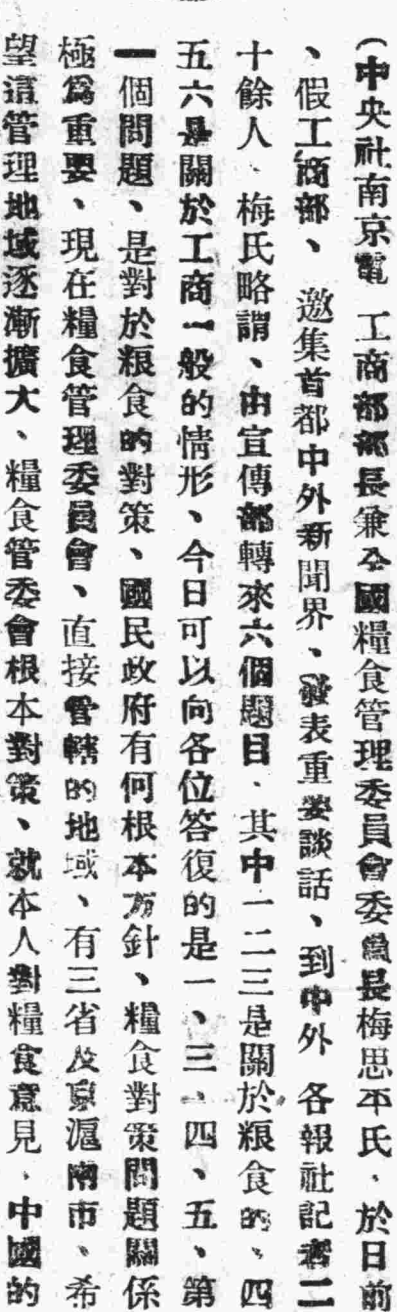 (中央社南京電 工商部部長兼全國糧食管理委員會委員長梅思平氏、於日前
、假工商部、邀集首都中外新聞界、發表重要談話、到中外各報社記者二
十餘人、梅氏略謂、由宣傳部轉來六個題目、其中一二三是關於粮食的、四
五六是關於工商一般的情形、今日可以向各位答復的是一、三、四、五、第
一個問題、是對於粮食的對策、國民政府有何根本方針、糧食對策問題關係
極爲重要、現在糧食管理委員會、直接管轄的地域、有三省及京滬兩市、希
望這管理地域逐漸擴大、糧食管委會根本對策、就本人對糧食意見、中國的